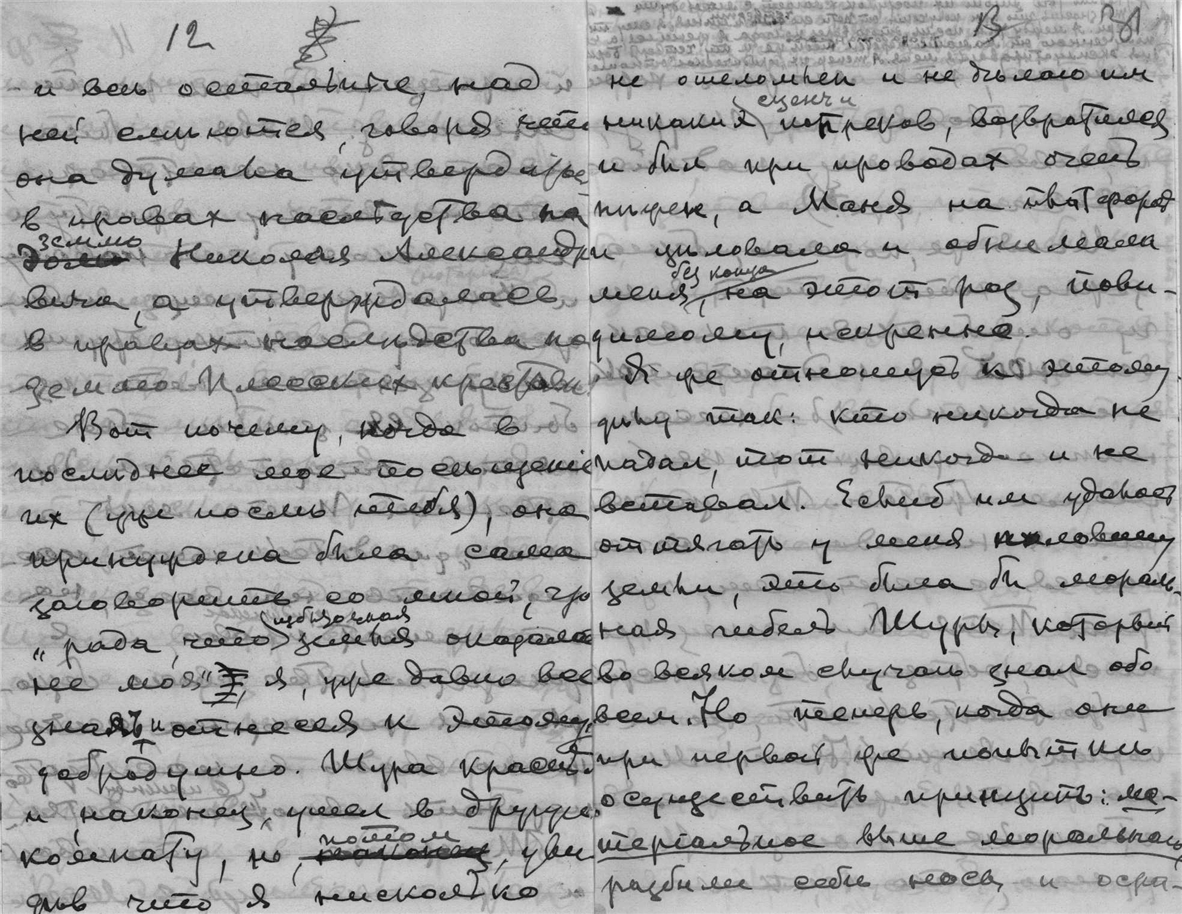 12
и весь остальные, над
ней смеются, говоря что
она думала утвердиться
в правах наслѣдства на
землю
дома Николая Александро
вича, а утверждалась
в правах наслѣдства на
землю Плесских крестьян.
Вот почему, когда в
послѣднее мое посѣщение
их (уже послѣ тебя), она
принуждена была сама
заговорить со мной, что
избызочная
„рада, что земля оказалась
не моя“, я, уже давно все
зная, отнесся к этому
добродушно. Шура краснѣл
и, наконец, ушел в другую
потом
комнату, но, наконец, уви
дѣв что я нисколько
13
не ошеломлен и не дѣлаю им
сцен и
никаких попреков, возвратился
и был при проводах очень
нѣжен, а Маня на платформѣ
и цѣловала и обнимала
без конца
меня, на этот раз, пови-
димому, искренно.
Я же отношусь к этому
дѣлу так: кто никогда не
падал, тот никогда и не
вставал. Еслиб им удалось
оттягать у меня половину
земли, это была бы мораль-
ная гибель Шуры, который
во всяком случаѣ знал обо
всем. Но теперь, когда они
при первой же попыткѣ
осуществить принцип: ма-
теріальное выше моральнаго,
разбили себѣ носы и